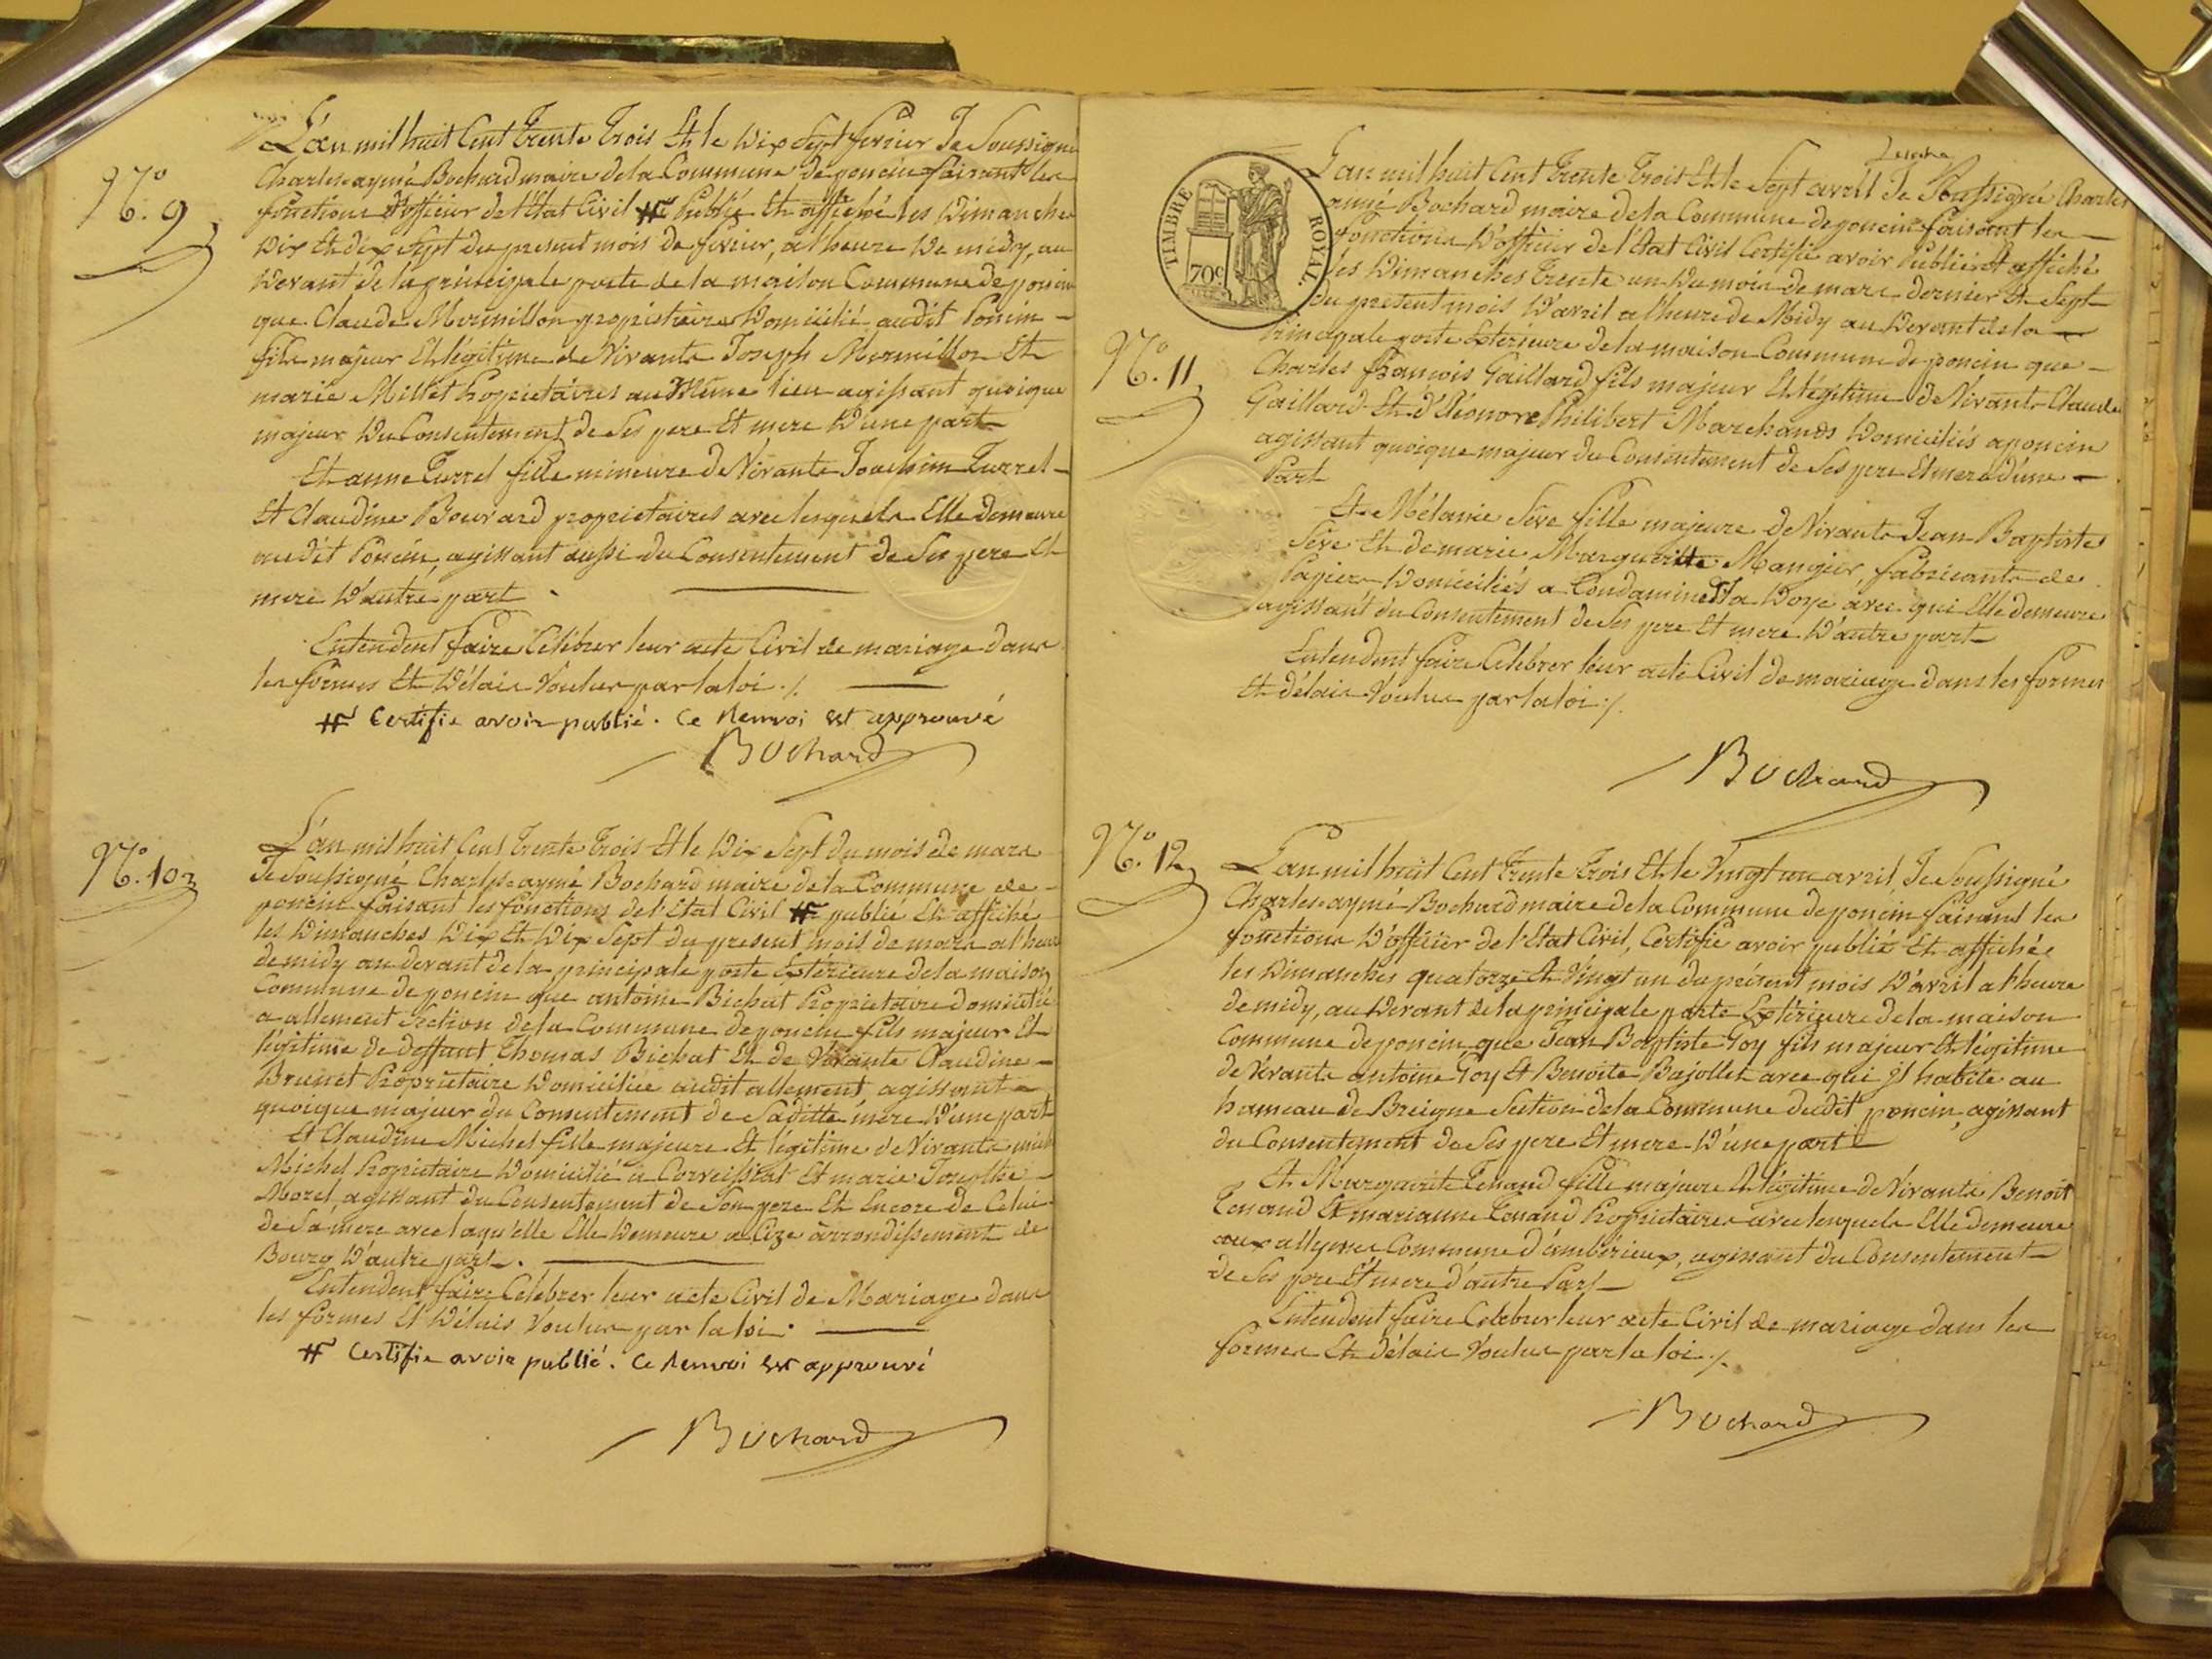 N.° 9
L'an mil huit Cent Trente Trois Et le Dix Sept fevrier Je Soussigné
Charles aymé Bochard maire de la Commune de poncin faisant les
fonctions d'officier de l'Etat Civil # Publié Et affiché les Dimanches
Dix Et dix Sept du present mois de fevrier, a l'heure De midy, au
Devant de la principale porte de la maison Commune de poncin
que Claude Mermillon propriétaire Domicilié audit Poncin
fils majeur Et légitime de Vivants Joseph Mermillon Et
marie Millet Propriétaires au Même lieu agissant quoique
majeur Du Consentement de Ses pere Et mere D'une part
Et anne Turrel fille mineure de Vivants Joachim Turrel
Et Claudine Bouvard propriétaires avec lesquels Elle demeure
audit Poncin, agissant aussi du Consentement de Ses pere Et
mere D'autre part
Entendent faire Célébrer leur acte Civil de mariage dans
les formes Et Délais Voulus par la loi ./.
# Certifie avoir publié. Ce Renvoi est approuvé
Bochard
N.° 10
L'an mil huit Cent Trente Trois Et le Dix Sept du mois de mars
Je Soussigné Charles aymé Bochard maire de la Commune de
poncin faisant les fonctions de l'Etat Civil # publié Et affiché
les Dimanches Dix Et Dix Sept du present mois de mars a l'heure
de midy au devant de la principale porte Extérieure de la maison
Commune de poncin que antoine Bichat Propriétaire domicilié
a allement Section de la Commune de poncin fils majeur Et
légitime de deffunt Thomas Bichat Et de Vivante Claudine
Brunet Propriétaire Domiciliée audit allement, agissant
quoique majeur du Consentement de Saditte mere D'une part
Et Claudine Michel fille majeure Et légitime de Vivants
Michel Propriétaire Domicilié à Corveissiat Et marie Josephte
Morel, agissant du Consentement de Son pere Et Encore de Celui
de Sa mere avec laqu'elle Elle Demeure a Cize arrondissement de
Bourg D'autre part.
Entendent faire Célébrer leur acte Civil de Mariage dans
les formes Et Délais Voulus par la loi.
# Certifie avoir publié. Ce Renvoi est approuvé
Bochard
TIMBRE ROYAL.
70c
N.° 11
L'an mil huit Cent Trente Trois Et le Sept avril Je Soussigné Charles
aymé Bochard maire de la Commune de poncin faisant les
fonctions D'officier de l'Etat Civil Certifie avoir Publié Et affiché
les Dimanches Trente un Du mois de mars dernier Et Sept
du présent mois D'avril a l'heure de Midy au Devant de la
Principale porte Extérieure de la maison Commune de poncin que
Charles François Gaillard fils majeur Et légitime de Vivants Claude
Gaillard Et d'Eléonore Philibert Marchands Domiciliés a poncin
agissant quoique majeur du Consentement de Ses pere Et mere d'une
Part
Et Mélanie Sève fille majeure de Vivants Jean Baptiste
Sève Et de marie Margueritte Mangier, fabricants de
Papiers Domiciliés a Condamine la Doye avec qui Elle demeure
agissant du Consentement de Ses pere Et mere D'autre part
Entendent faire Célébrer leur acte Civil de mariage dans les formes
Et délais Voulus par la loi ./.
Bochard
N.° 12
L'an mil huit Cent Trente Trois Et le Vingt un avril, Je Soussigné
Charles aymé Bochard maire de la Commune de poncin faisant les
fonctions D'officier de l'Etat Civil, Certifie avoir publié Et affiché
les Dimanches quatorze Et Vingt un du présent mois D'avril a l'heure
de midy, au Devant de la principale porte Extérieure de la maison
Commune de poncin que Jean Baptiste Goy fils majeur Et légitime
de Vivants antoine Goy Et Benoite Bajollet avec qui il habite au
hameau de Breigne Section de la Commune dudit poncin, agissant
du Consentement de Ses pere Et mere D'une part
Et Marguerite Tenand fille majeure Et légitime de Vivants Benoit
Tenand Et marianne Tenand Propriétaires avec lesquels Elle demeure
aux allymes Commune d'ambérieux, agissant du Consentement
de Ses pere Et mere d'autre Part
Entendent faire Célébrer leur acte Civil de mariage dans les
formes Et délais Voulus par la loi ./.
Bochard